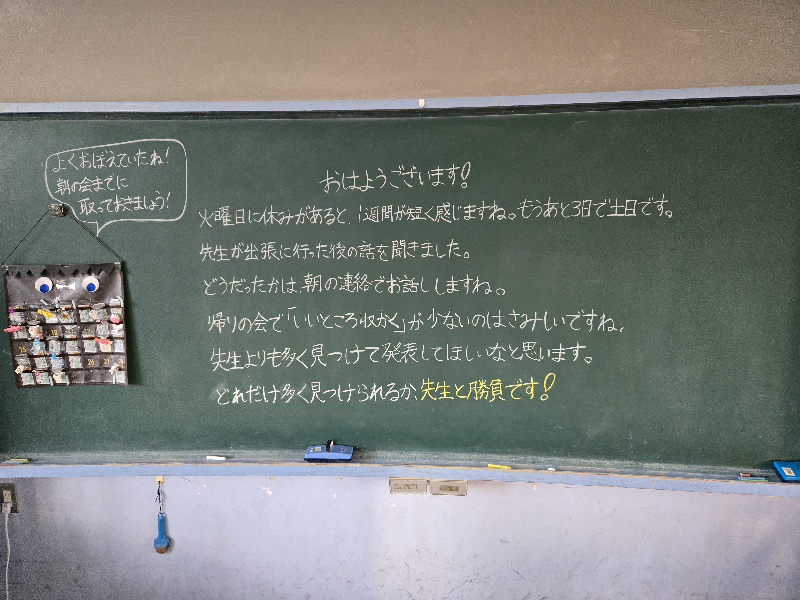 よくおぼえていたね!
朝の会までに
取っておきましょう!
おはようございます!
火曜日に休みがあると、1週間が短く感じますね。もうあと3日で土日です。
先生が出張に行った後の話を聞きました。
どうだったかは、朝の連絡でお話ししますね。
帰りの会で「いいところ収かく」が少ないのはさみしいですね。
先生よりも多く見つけて発表してほしいなと思います。
どれだけ多く見つけられるか、先生と勝負です!